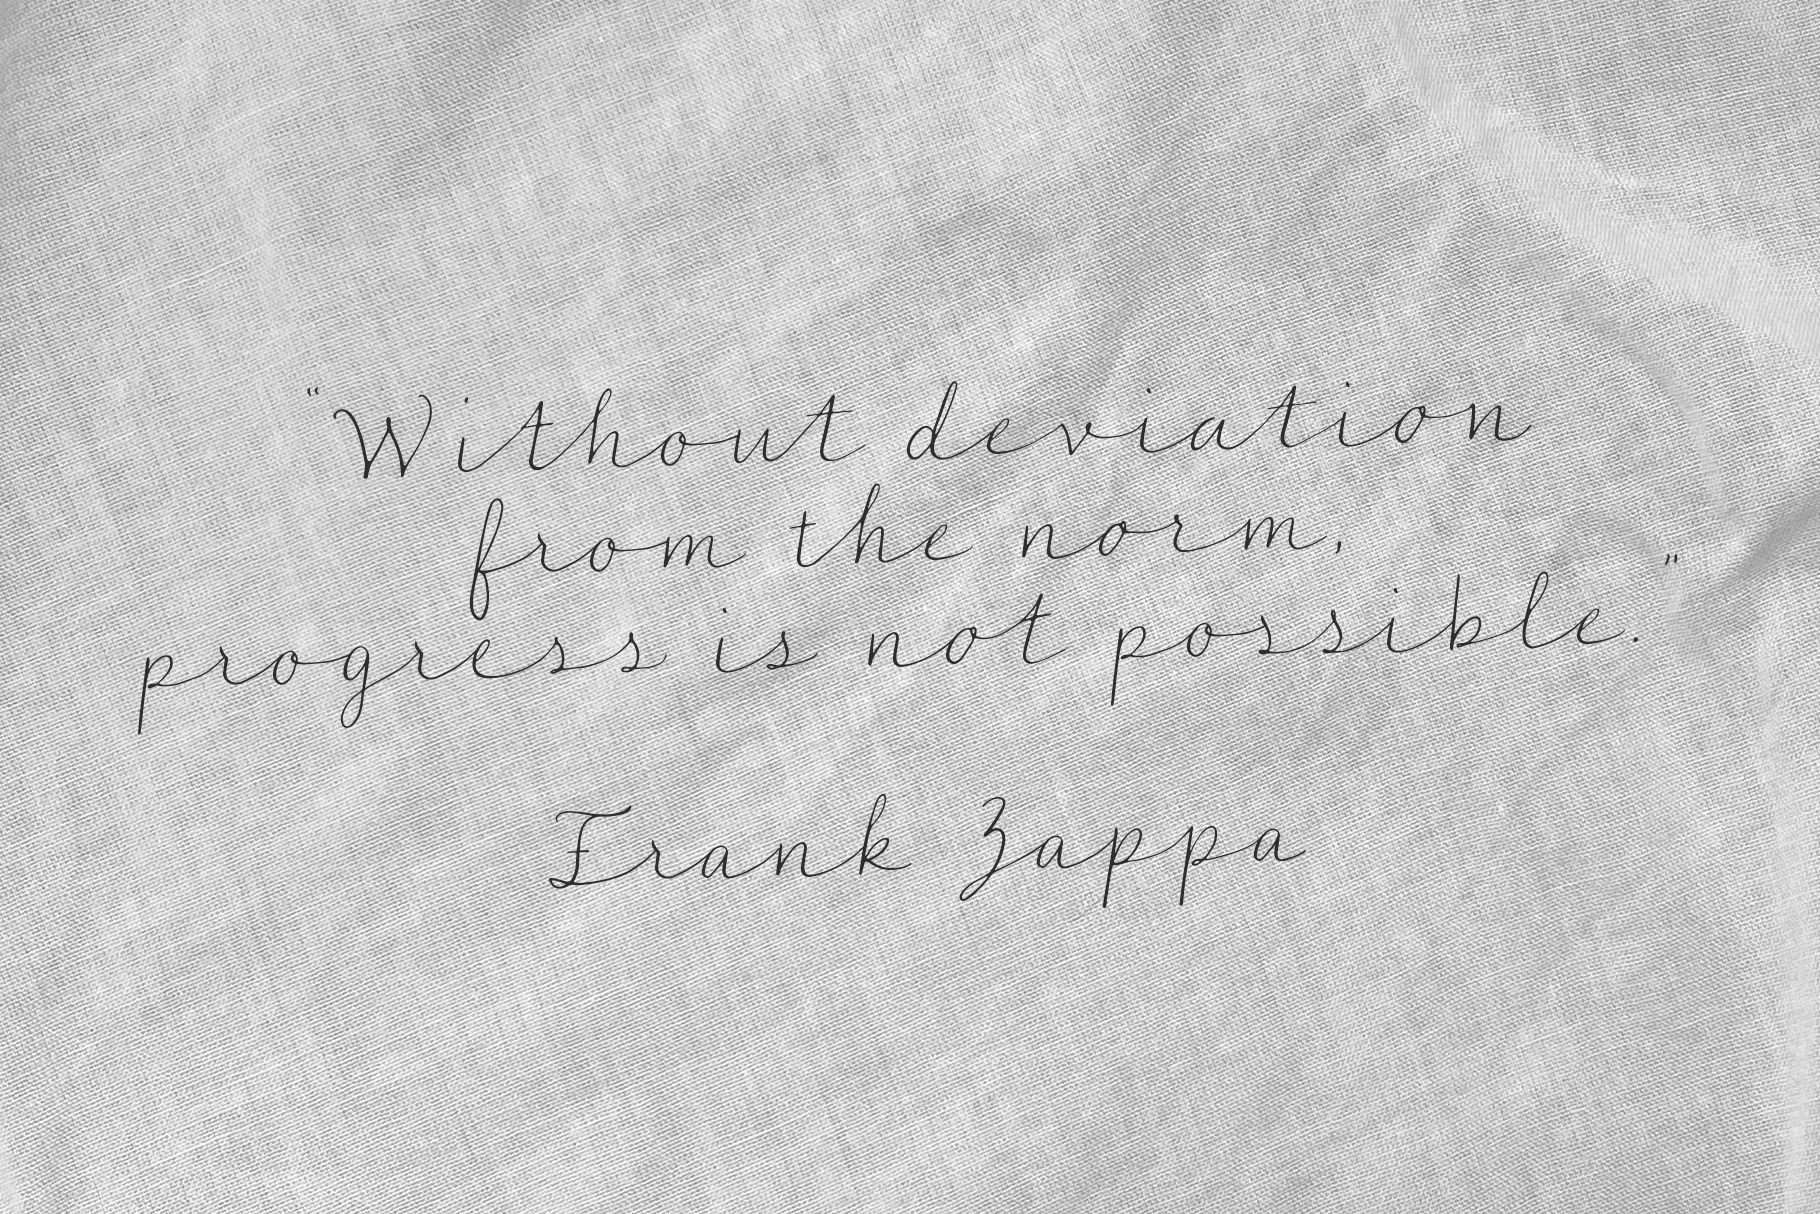 “Without deviation
from the norm,
progress is not possible.”
Frank Zappa